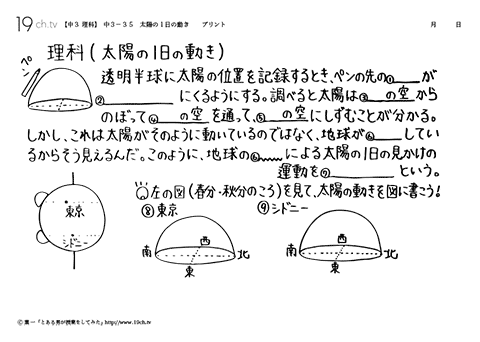 19ch.tv 【中3 理科】 中3-35 太陽の1日の動き プリント 月 日
理科(太陽の1日の動き)
ペン
透明半球に太陽の位置を記録するとき、ペンの先の①____が
②________にくるようにする。調べると太陽は③__の空から
のぼって④__の空を通って、⑤__の空にしずむことが分かる。
しかし、これは太陽がそのように動いているのではなく、地球が⑥____してい
るからそう見えるんだ。このように、地球の⑥____による太陽の1日の見かけの
運動を⑦________という。
左の図(春分・秋分のころ)を見て、太陽の動きを図に書こう!
⑧東京 ⑨シドニー
東京
シドニー
南 西 北 東
南 西 北 東
© 葉一「とある男が授業をしてみた」http://www.19ch.tv